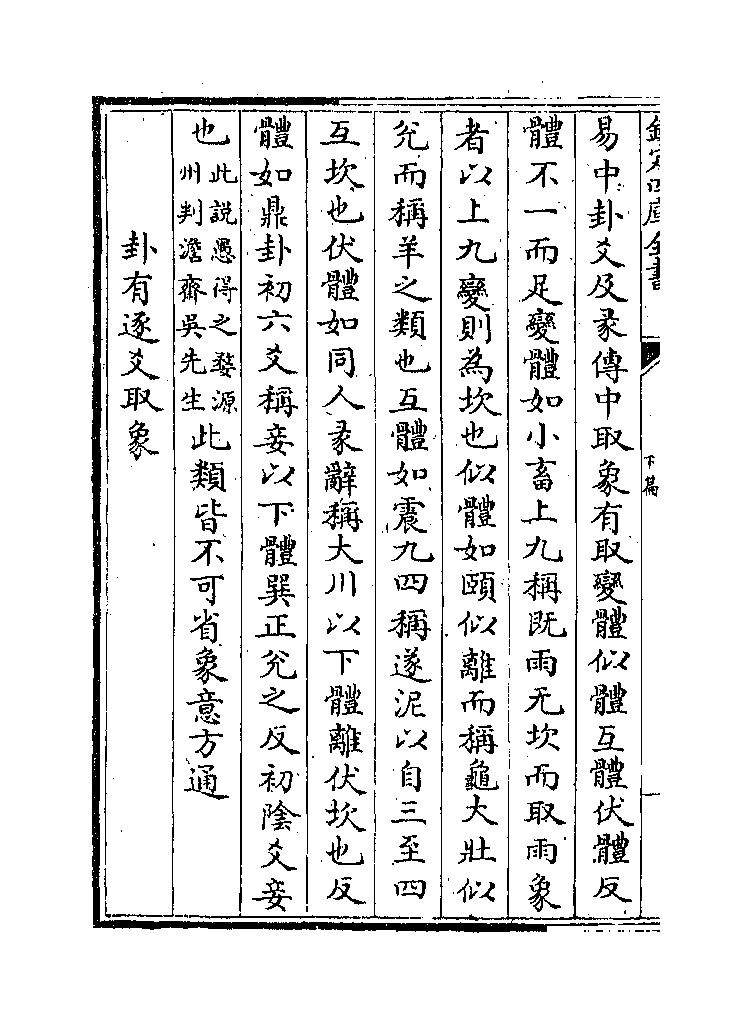 欽定四庫全書
下篇
易中卦爻及彖傳中取象有取變體似體互體伏體反
體不一而足變體如小畜上九稱既雨无坎而取雨象
者以上九變則為坎也似體如頤似離而稱龜大壯似
兊而稱羊之類也互體如震九四稱遂泥以自三至四
互坎也伏體如同人彖辭稱大川以下體離伏坎也反
體如鼎卦初六爻稱妾以下體巽正兊之反初陰爻妾
也此說愚得之婺源州判澹齋吳先生此類皆不可省象意方通
卦有逐爻取象